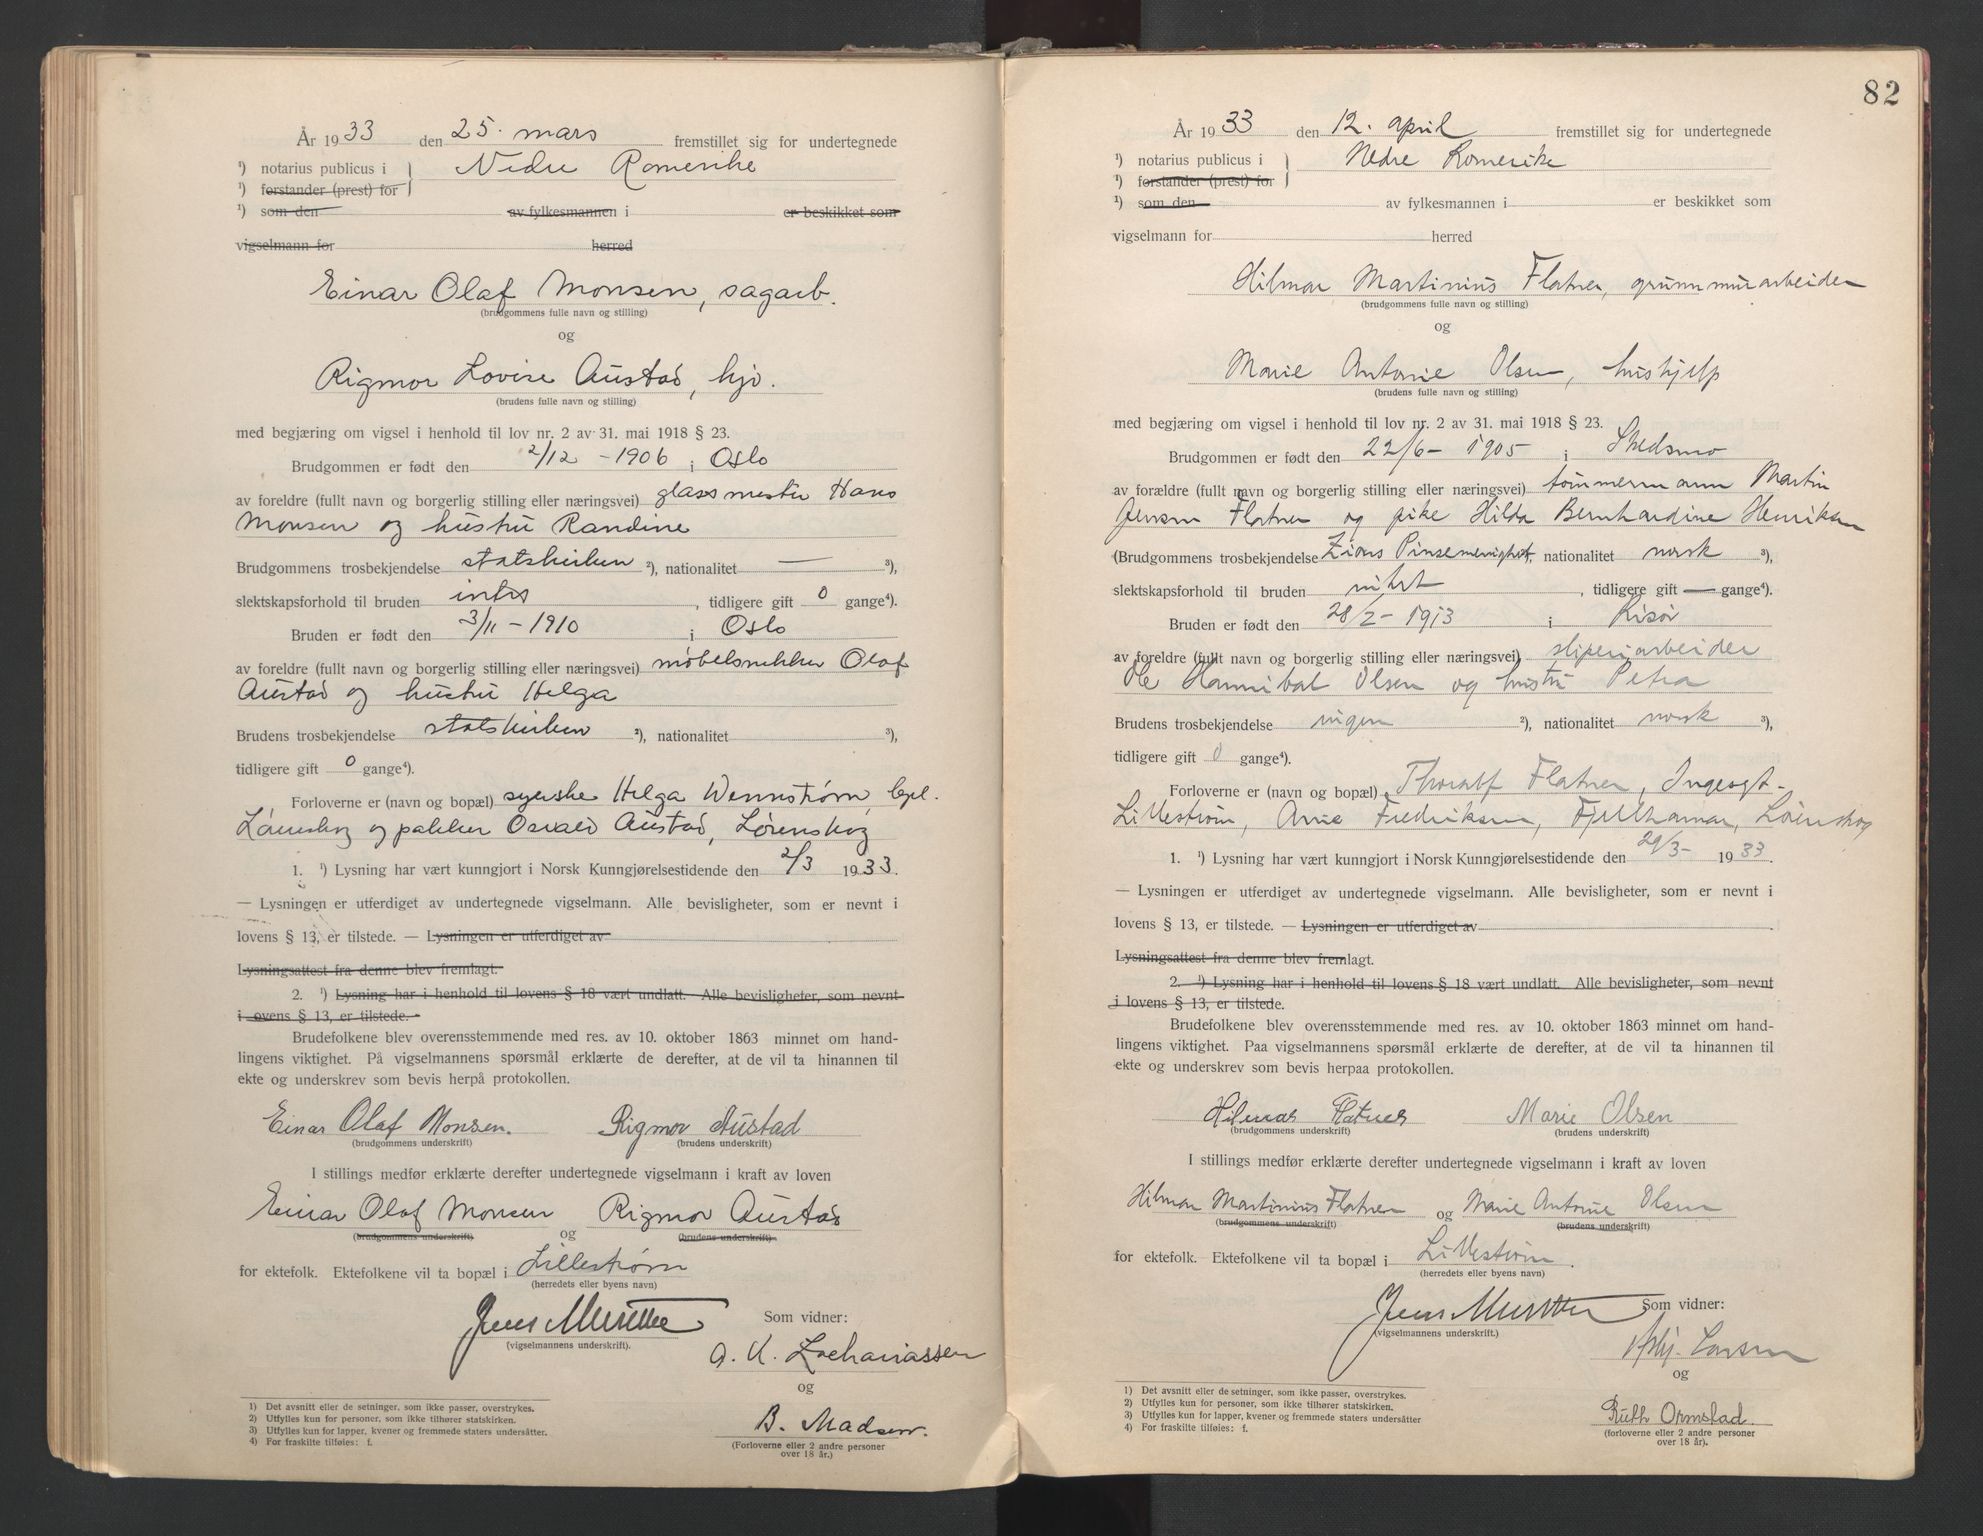 År 1933 den 25. mars fremstillet sig for undertegnede
¹) notarius publicus i } Nedre Romerike
¹) forstander (prest) for
¹) som den av fylkesmannen i er beskikket som
vigselmann for herred
Einar Olaf Monsen, sagarb.
(brudgommens fulle navn og stilling)
og
Rigmor Lovise Austad, hjv.
(brudens fulle navn og stilling)
med begjæring om vigsel i henhold til lov nr. 2 av 31. mai 1918 § 23.
Brudgommen er født den 2/12 - 1906 i Oslo
av foreldre (fullt navn og borgerlig stilling eller næringsvei) glassmester Hans
Monsen og hustru Randine
Brudgommens trosbekjendelse statskirken ²), nationalitet — ³),
slektskapsforhold til bruden intet, tidligere gift 0 gange⁴).
Bruden er født den 3/11 - 1910 i Oslo
av foreldre (fullt navn og borgerlig stilling eller næringsvei) møbelsnekker Olaf
Austad og hustru Helga
Brudens trosbekjendelse statskirken ²), nationalitet ³),
tidligere gift 0 gange⁴).
Forloverne er (navn og bopæl) syerske Helga Wennstrøm, bpl.
Lørenskog og pakker Osvald Austad, Lørenskog
1. ¹) Lysning har vært kunngjort i Norsk Kunngjørelsestidende den 2/3 1933.
— Lysningen er utferdiget av undertegnede vigselmann. Alle bevisligheter, som er nevnt i
lovens § 13, er tilstede. — Lysningen er utferdiget av
Lysningsattest fra denne blev fremlagt.
2. ¹) Lysning har i henhold til lovens § 18 vært undlatt. Alle bevisligheter, som nevnt
i lovens § 13, er tilstede.
Brudefolkene blev overensstemmende med res. av 10. oktober 1863 minnet om hand-
lingens viktighet. På vigselmannens spørsmål erklærte de derefter, at de vil ta hinannen til
ekte og underskrev som bevis herpå protokollen.
Einar Olaf Monsen. Rigmor Austad
(brudgommens underskrift) (brudens underskrift)
I stillings medfør erklærte derefter undertegnede vigselmann i kraft av loven
Einar Olaf Monsen og Rigmor Austad
(brudgommens underskrift) (brudens underskrift)
for ektefolk. Ektefolkene vil ta bopæl i Lillestrøm
(herredets eller byens navn)
Jens
(vigselmannens underskrift).
Som vidner:
A. K. Zachariassen
og
B. Madsen.
(Forloverne eller 2 andre personer
over 18 år.)
1) Det avsnitt eller de setninger, som ikke passer, overstrykes.
2) Utfylles kun for personer, som ikke tilhører statskirken.
3) Utfylles kun for lapper, kvener og fremmede staters undersåtter.
4) For fraskilte tilføies: f.
82
År 1933 den 12. april fremstillet sig for undertegnede
¹) notarius publicus i } Nedre Romerike
¹) forstander (prest) for
¹) som den av fylkesmannen i er beskikket som
vigselmann for herred
Hilmar Martinius Flatner, grunnmurarbeider
(brudgommens fulle navn og stilling)
og
Marie Antonie Olsen, hushjelp
(brudens fulle navn og stilling)
med begjæring om vigsel i henhold til lov nr. 2 av 31. mai 1918 § 23.
Brudgommen er født den 22/6 - 1905 i Skedsmo
av forældre (fullt navn og borgerlig stilling eller næringsvei) tømmermann Martin
Jensen Flatner og pike Hilda Bernhardine Henriksen
(Brudgommens trosbekjendelse Zions Pinsemenighet, nationalitet norsk ³),
slektskapsforhold til bruden intet, tidligere gift — gange⁴).
Bruden er født den 28/2 - 1913 i Risør
av foreldre (fullt navn og borgerlig stilling eller næringsvei) sliperiarbeider
Ole Hannibal Olsen og hustru Petra
Brudens trosbekjendelse ingen ²), nationalitet norsk ³),
tidligere gift 0 gange⁴).
Forloverne er (navn og bopæl) Thoralf Flatner,
Lillestrøm, Arne Fredriksen, Fjellhamar, Lørenskog
1. ¹) Lysning har vært kunngjort i Norsk Kunngjørelsestidende den 29/3- 1933.
— Lysningen er utferdiget av undertegnede vigselmann. Alle bevisligheter, som er nevnt i
lovens § 13, er tilstede. — Lysningen er utferdiget av .
Lysningsattest fra denne blev fremlagt.
2. ¹) Lysning har i henhold til lovens § 18 vært undlatt. Alle bevisligheter, som nevnt
i lovens § 13, er tilstede.
Brudefolkene blev overensstemmende med res. av 10. oktober 1863 minnet om hand-
lingens viktighet. Paa vigselmannens spørsmål erklærte de derefter, at de vil ta hinannen til
ekte og underskrev som bevis herpaa protokollen.
Hilmar Flatner Marie Olsen
(brudgommens underskrift) (brudens underskrift)
I stillings medfør erklærte derefter undertegnede vigselmann i kraft av loven
Hilmar Martinius Flatner og Marie Antonie Olsen
(brudgommens underskrift) (brudens underskrift)
for ektefolk. Ektefolkene vil ta bopæl i Lillestrøm.
(herredets eller byens navn)
Jens
(vigselmannens underskrift.)
Som vidner:
Larsen
og
Ruth Ormstad.
(forloverne eller 2 andre personer
over 18 år).
1) Det avsnitt eller de setninger, som ikke passer, overstrykes.
2) Utfylles kun for personer, som ikke tilhører statskirken.
3) Utfylles kun for lapper, kvener og fremmede staters undersåtter
4) For fraskilte tilføies: f.